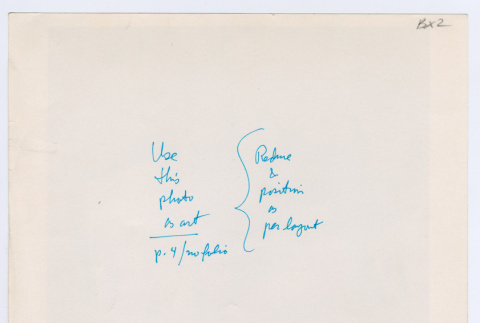 Bx2
Use
this
photo
as art
p. 4/no folio
Reduce
&
position
as
per layout